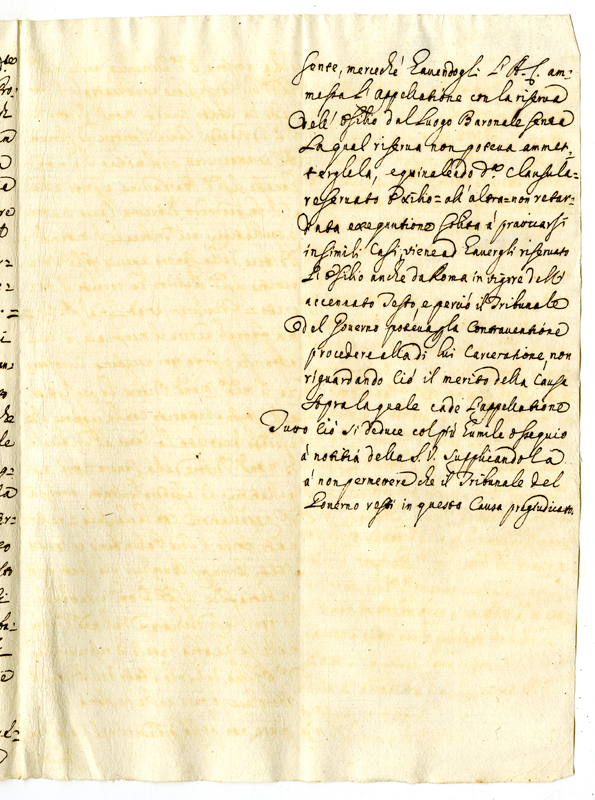 sente, merceche havendogli l'A. C. am=
messa l'appellatione con la riserva
dell'Esilio dal Luogo Baronale senza
La qual riserva non poteva ammet=
tergliela, equivalendo d.ᵃ Clausula=
reservato Exilio= all'altra=non retar=
data exequutione solita à praticarsi
in simili Casi, viene ad havergli riservato
L'Esilio anche da Roma in vigore dell'
accennato Testo, e perciò il Tribunale
del Governo poteva p la Contraventione
procedere alla di lui Carceratione, non
riguardando Ciò il merito della Causa
sopra la quale cade L'appellatione
Tutto Ciò si deduce col più humile ossequio
à notitia della S. V. Supplicandola
à non permettere che il Tribunale del
Governo resti in questa Causa pregiudicato.